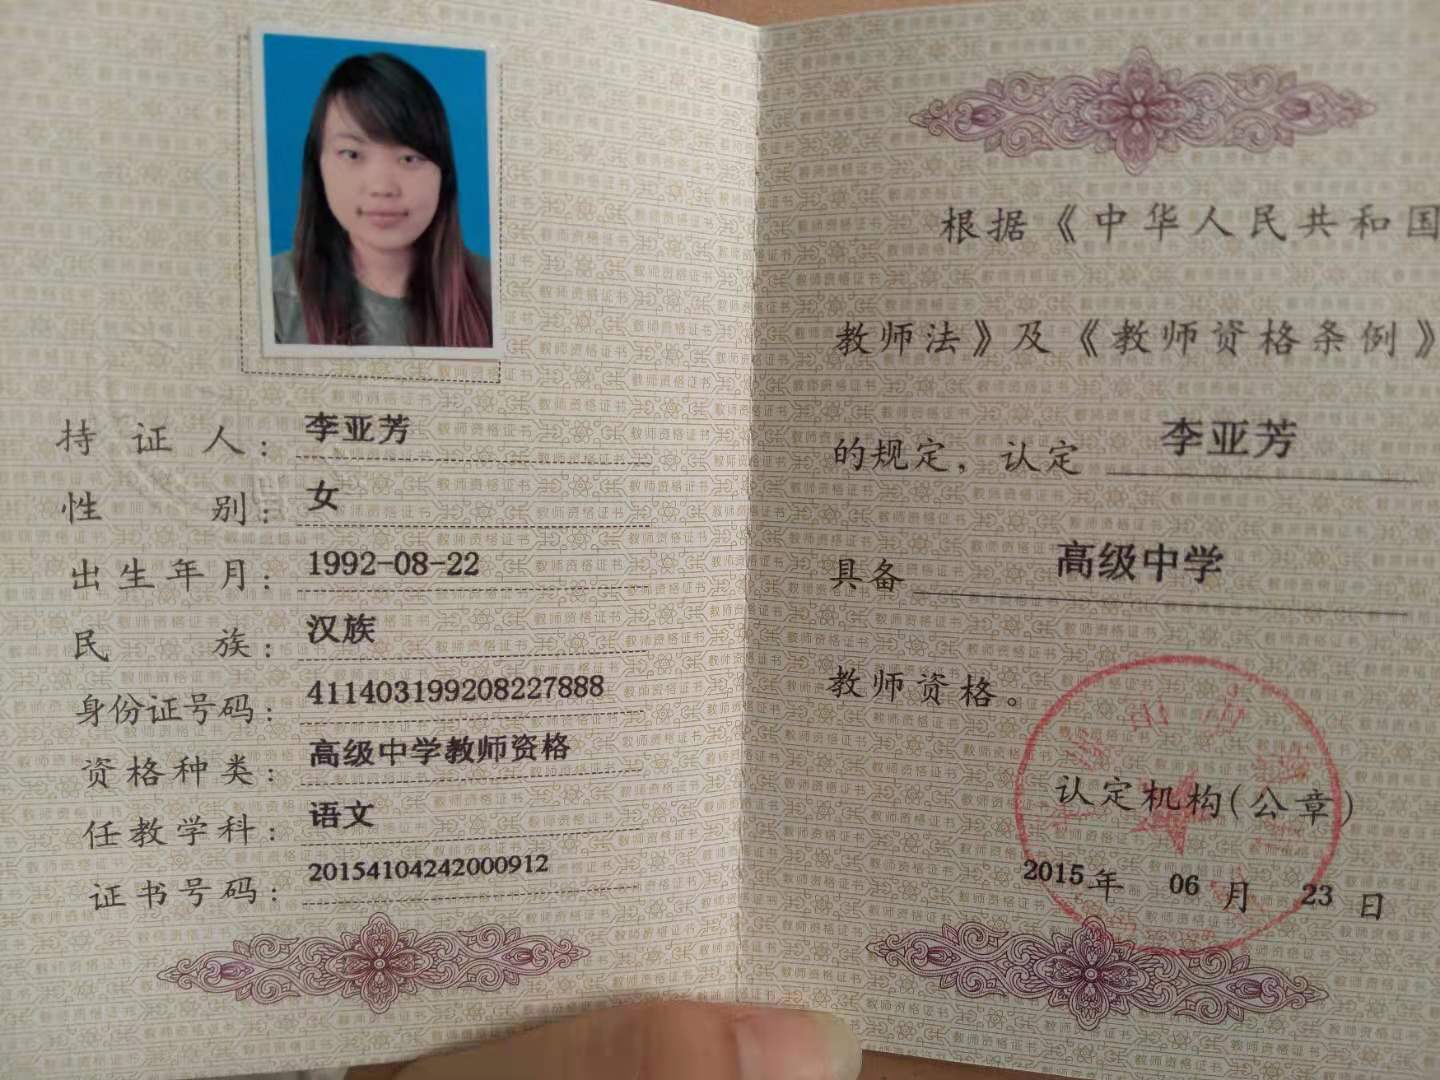 持证人：李亚芳
性别：女
出生年月：1992-08-22
民族：汉族
身份证号码：411403199208227888
资格种类：高级中学教师资格
任教学科：语文
证书号码：20154104242000912
根据《中华人民共和国
教师法》及《教师资格条例》
的规定，认定 李亚芳
具备 高级中学
教师资格。
认定机构(公章)
2015年 06月 23日